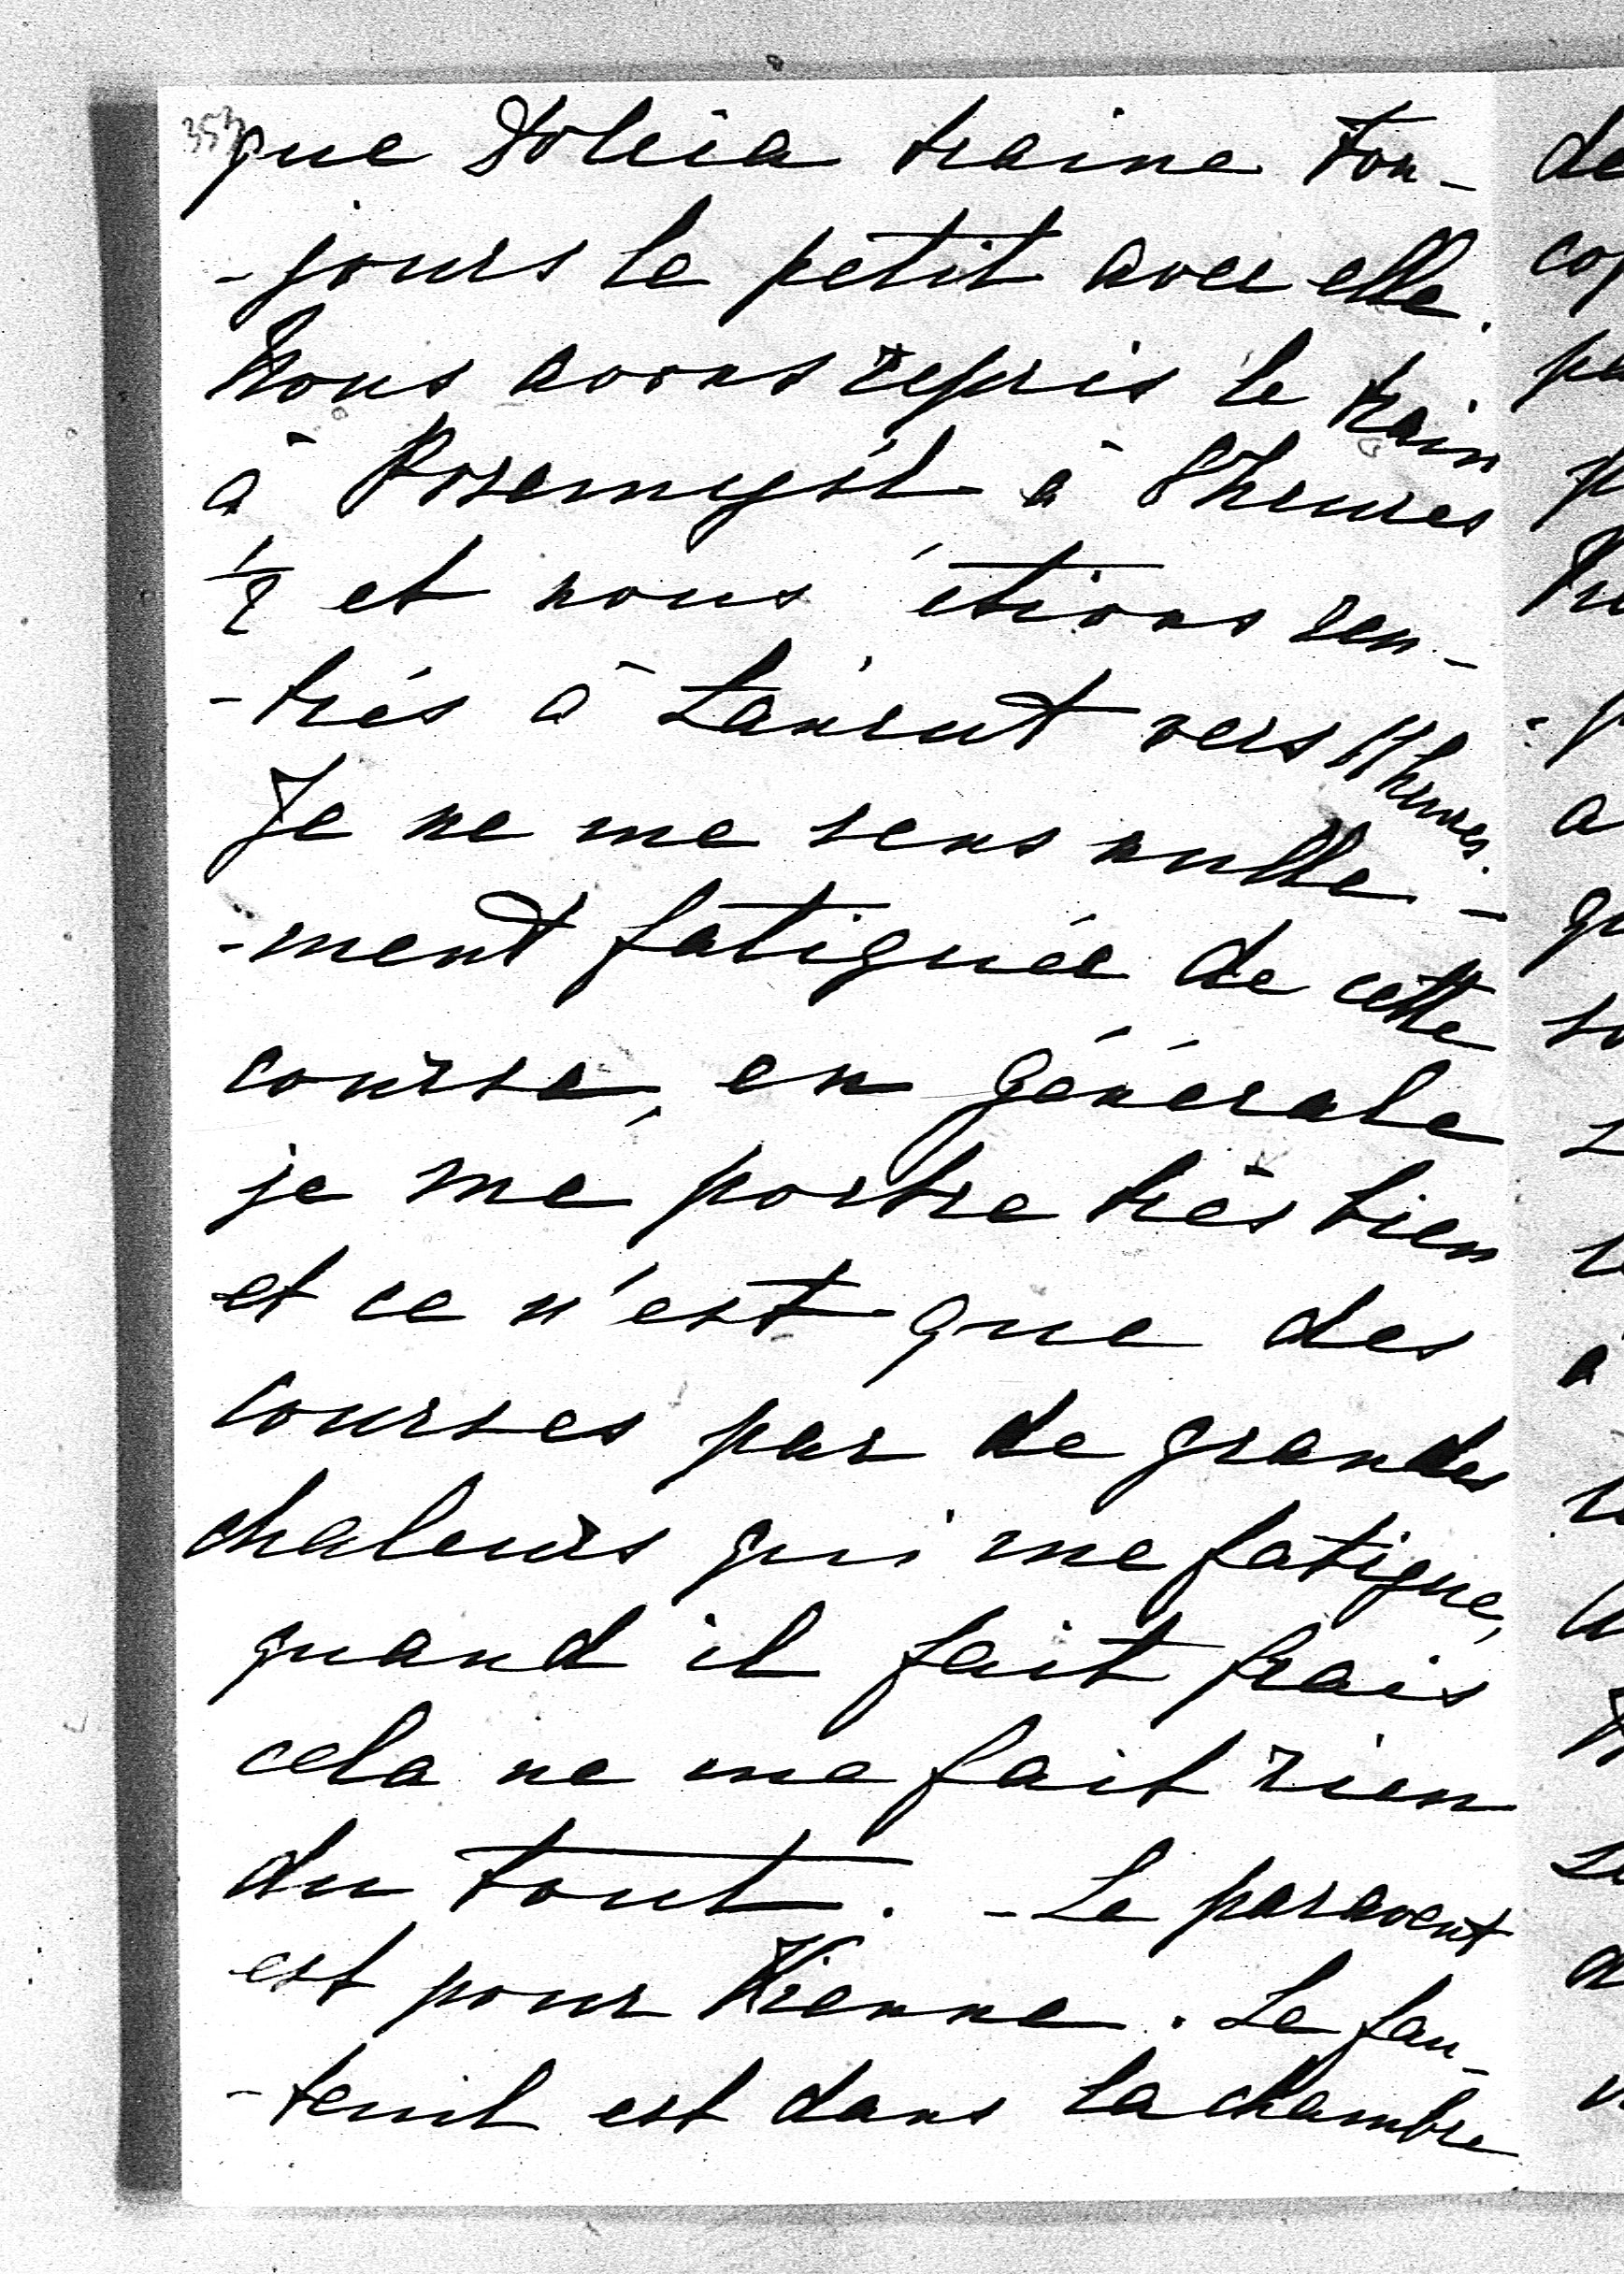 353
que Dolcia traine tou-
-jours le petit avec elle.
Nous avons repris le train
à Przemyśl à 8 heures
½ et nous étions ren-
-trés à Łańcut vers 11 heures.
Je ne me sens nulle-
-ment fatiguée de cette
course, en générale
je me portre très bien
et ce n'est que des
courses par de grandes
chaleurs qui me fatigue,
quand il fait frais
cela ne me fait rien
du tout. - Le paravent
est pour Vienne. Le fau-
-teuil est dans la chambre